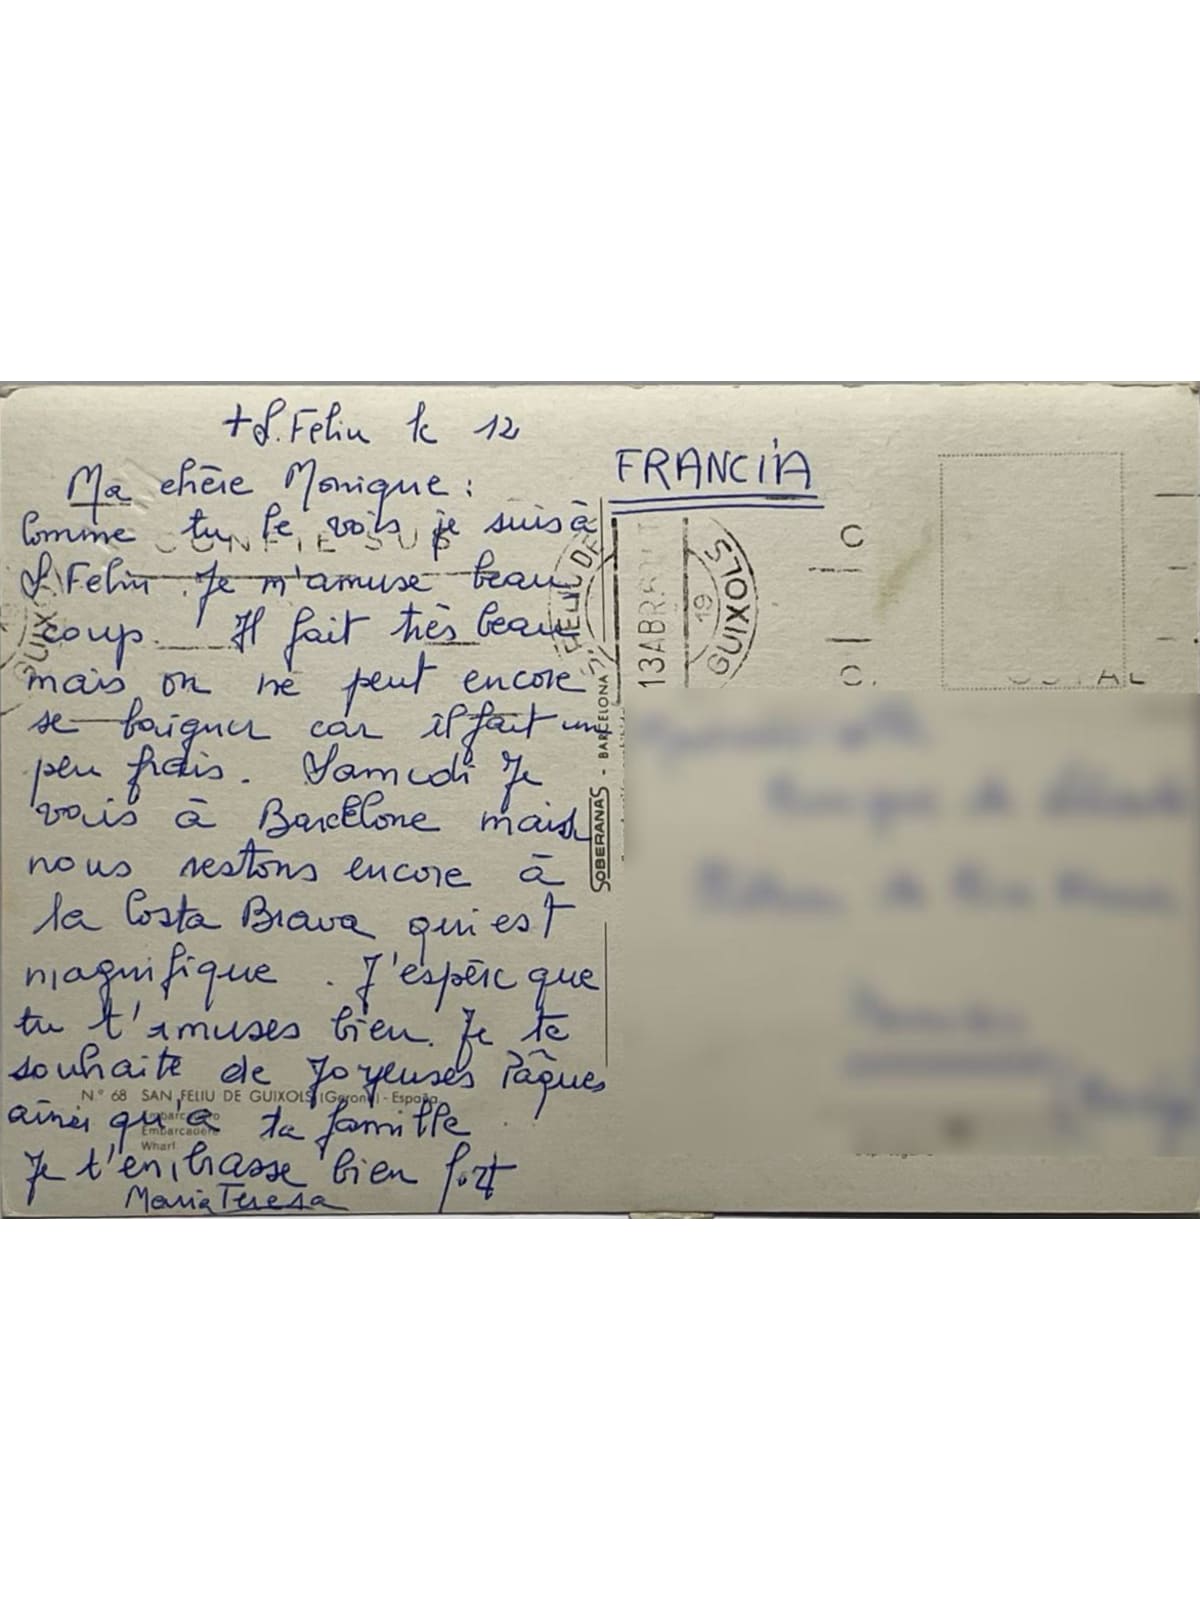 + S. Feliu le 12
Ma chère Monique :
Comme tu le vois je suis à
S. Feliu. Je m'amuse beau
coup. Il fait très beau
mais on ne peut encore
se baigner car il fait un
peu frais. Samedi Je
vais à Barcelone mais
nous restons encore à
la Costa Brava qui est
magnifique. J'espère que
tu t'amuses bien. Je te
souhaite de Joyeuses Pâques
ainsi qu'à ta famille
Je t'embrasse bien fort
Maria Teresa
FRANCIA
FELIU DE
GUIXOLS
13 ABR
19
GUIXOLS
SOBERANAS - BARCELONA
N.º 68 SAN FELIU DE GUIXOLS (Gerona) - España
Embarcadero
Embarcadère
Wharf